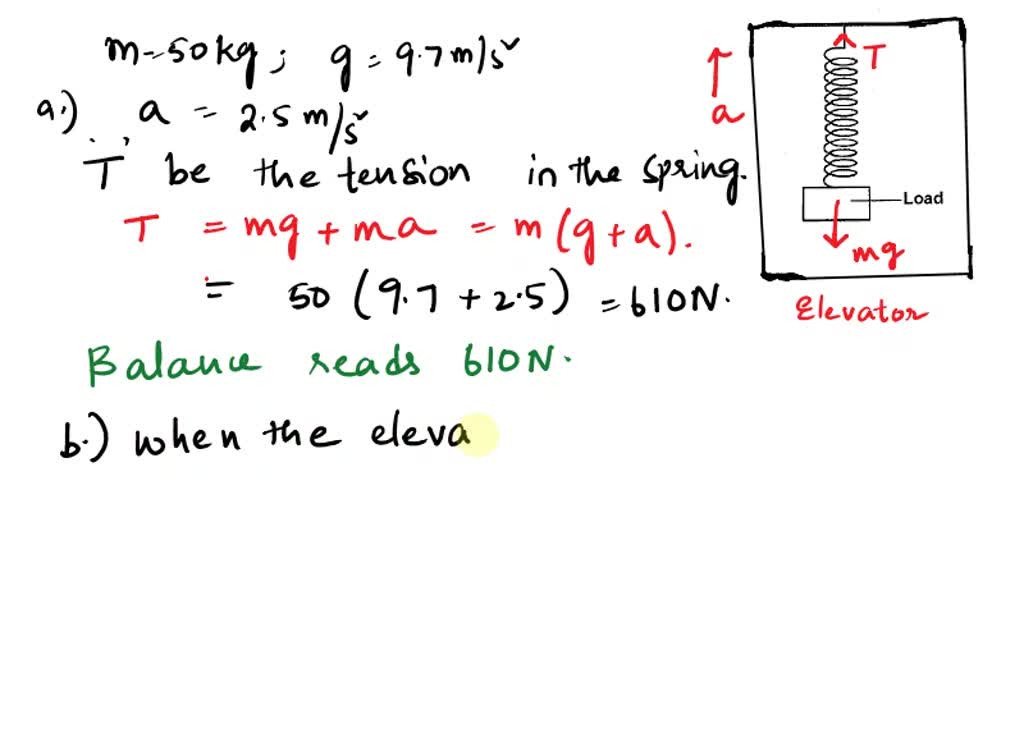 m=50kg; g = 9.7 m/s²
a.) a = 2.5 m/s²
T be the tension in the spring.
T = mg + ma = m(g+a).
= 50 (9.7 + 2.5) = 610N.
Balance reads 610N.
b.) when the eleva
T
a
Load
mg
Elevator